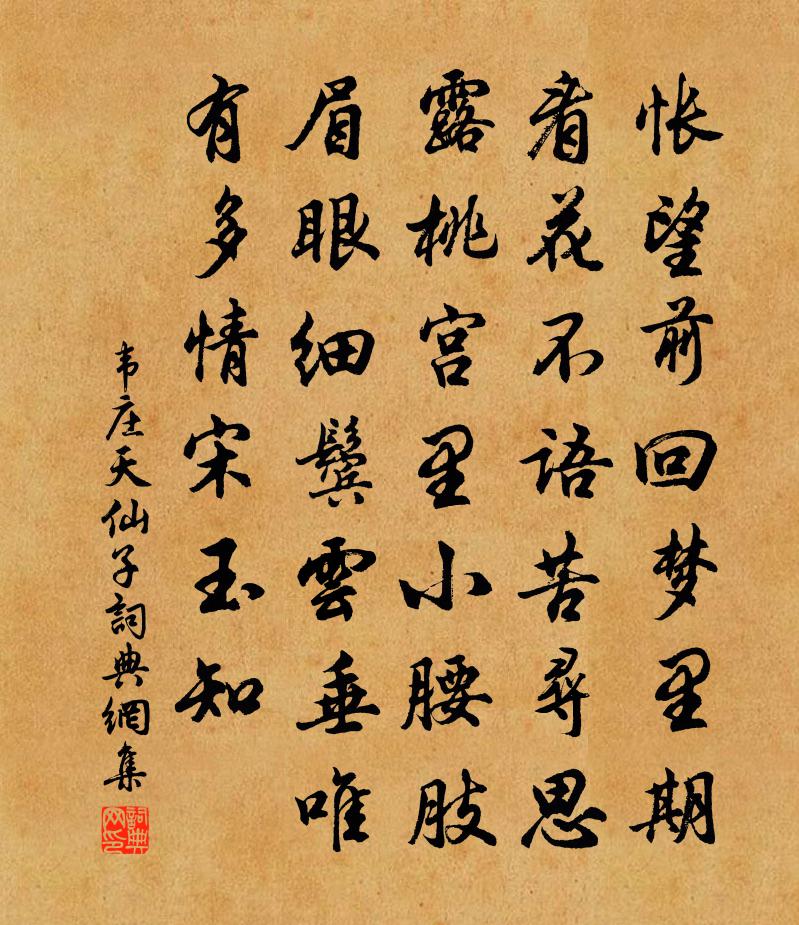 怅望前回梦里期
看花不语苦寻思
露桃宫里小腰肢
眉眼细鬓雲垂唯
有多情宋玉知
韦庄天仙子詞典網集
詞典网印